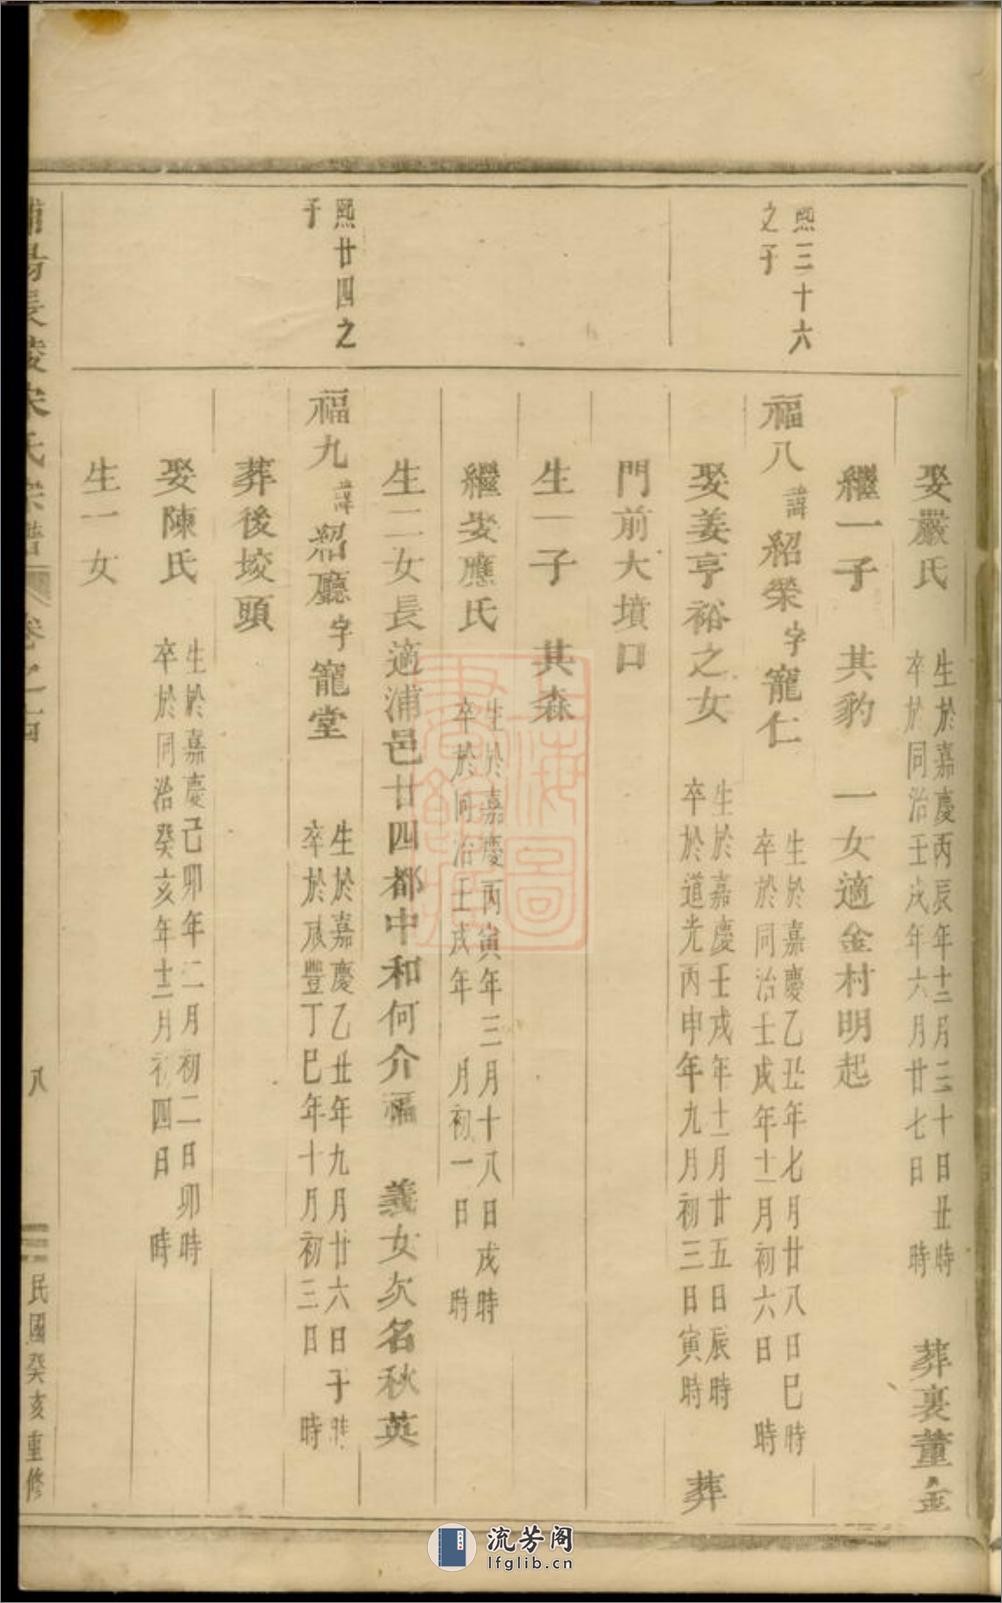 娶嚴氏 生於嘉慶丙辰年十二月三十日丑時 卒於同治壬戌年六月廿七日 時 葬裏董金
繼一子 其豹 一女適金村明起
熙三十六之子
福八 諱紹榮字寵仁 生於嘉慶乙丑年七月廿八日巳時 卒於同治壬戌年十二月初六日 時
娶姜亨裕之女 生於嘉慶壬戌年十二月廿五日辰時 卒於道光丙申年九月初三日寅時 葬
門前大墳口
生一子 其森
繼娶應氏 生於嘉慶丙寅年三月十八日戌時 卒於同治壬戌年 月初一日 時
生二女長適浦邑廿四都中和何介福 義女次名秋英
熙廿四之子
福九 諱紹廳字寵堂 生於嘉慶乙丑年九月廿六日子時 卒於咸豐丁巳年十月初三日 時
葬後垵頭
娶陳氏 生於嘉慶己卯年二月初二日卯時 卒於同治癸亥年十二月初四日 時
生一女
浦陽長陵宋氏宗譜 卷之四 八 民國癸亥重修
上海圖書館藏
流芳阁
lfglib.cn